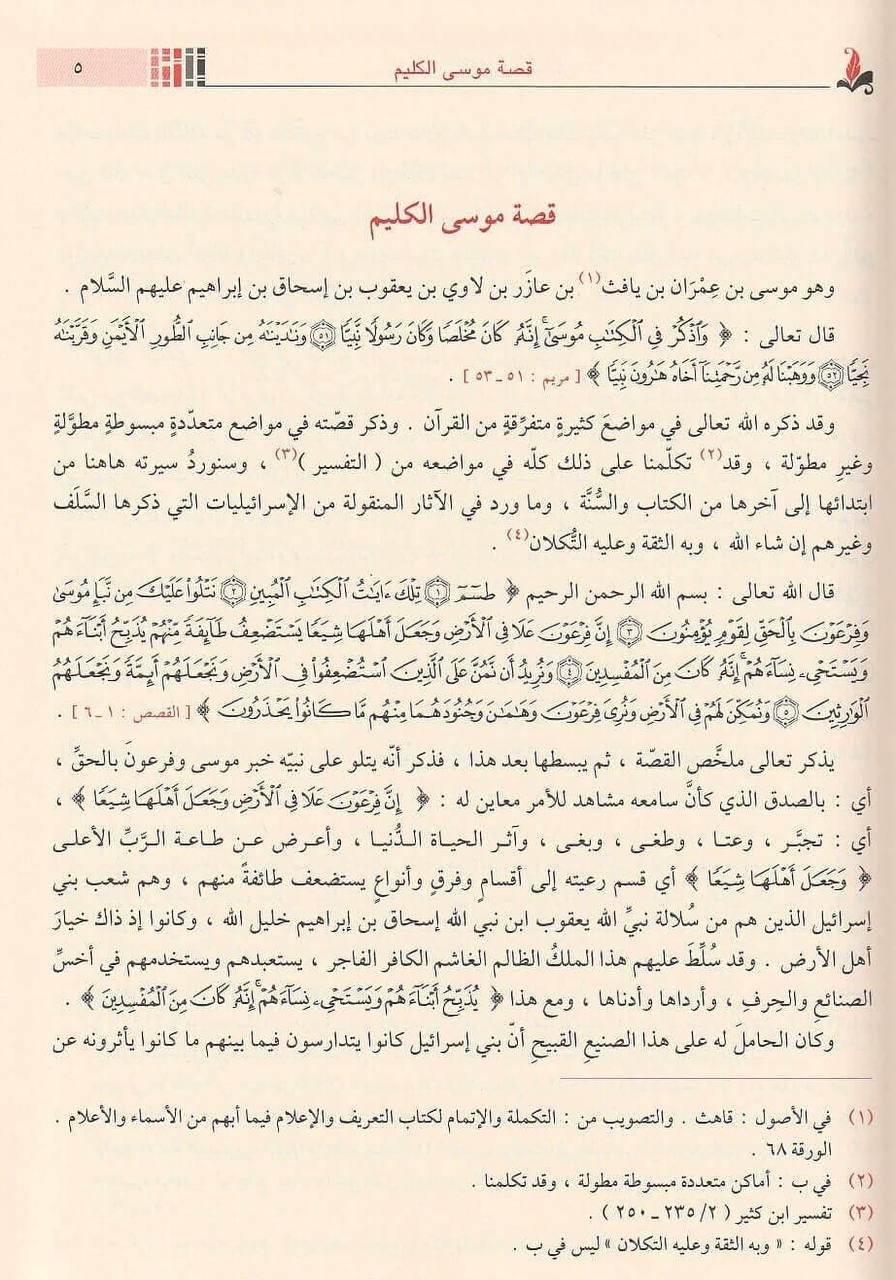 قصة موسى الكليم
٥
قصة موسى الكليم
وهو موسى بن عِمْرَان بن يافث(١) بن عازَر بن لاوي بن يعقوب بن إسحاق بن إبراهيم عليهم السَّلام .
قال تعالى : ﴿ وَٱذْكُرْ فِى ٱلْكِتَٰبِ مُوسَىٰٓ إِنَّهُۥ كَانَ مُخْلَصًا وَكَانَ رَسُولًا نَّبِيًّا ۝٥١ وَنَٰدَيْنَٰهُ مِن جَانِبِ ٱلطُّورِ ٱلْأَيْمَنِ وَقَرَّبْنَٰهُ
نَجِيًّا ۝٥٢ وَوَهَبْنَا لَهُۥ مِن رَّحْمَتِنَآ أَخَاهُ هَٰرُونَ نَبِيًّا ﴾ [ مريم : ٥١ـ٥٣ ] .
وقد ذكره الله تعالى في مواضعَ كثيرةٍ متفرِّقةٍ من القرآن . وذكر قصّته في مواضع متعدّدةٍ مبسوطةٍ مطوَّلةٍ
وغيرِ مطوّلة ، وقد(٢) تكلّمنا على ذلك كلّه في مواضعه من ( التفسير )(٣) ، وسنوردُ سيرته هاهنا من
ابتدائها إلى آخرها من الكتاب والسُّنَّة ، وما ورد في الآثار المنقولة من الإسرائيليات التي ذكرها السَّلَف
وغيرهم إن شاء الله ، وبه الثقة وعليه التُّكلان(٤) .
قال الله تعالى : بسم الله الرحمن الرحيم ﴿ طسٓمٓ ۝١ تِلْكَ ءَايَٰتُ ٱلْكِتَٰبِ ٱلْمُبِينِ ۝٢ نَتْلُوا۟ عَلَيْكَ مِن نَّبَإِ مُوسَىٰ
وَفِرْعَوْنَ بِٱلْحَقِّ لِقَوْمٍ يُؤْمِنُونَ ۝٣ إِنَّ فِرْعَوْنَ عَلَا فِى ٱلْأَرْضِ وَجَعَلَ أَهْلَهَا شِيَعًا يَسْتَضْعِفُ طَآئِفَةً مِّنْهُمْ يُذَبِّحُ أَبْنَآءَهُمْ
وَيَسْتَحْىِۦ نِسَآءَهُمْ إِنَّهُۥ كَانَ مِنَ ٱلْمُفْسِدِينَ ۝٤ وَنُرِيدُ أَن نَّمُنَّ عَلَى ٱلَّذِينَ ٱسْتُضْعِفُوا۟ فِى ٱلْأَرْضِ وَنَجْعَلَهُمْ أَئِمَّةً وَنَجْعَلَهُمُ
ٱلْوَٰرِثِينَ ۝٥ وَنُمَكِّنَ لَهُمْ فِى ٱلْأَرْضِ وَنُرِىَ فِرْعَوْنَ وَهَٰمَٰنَ وَجُنُودَهُمَا مِنْهُم مَّا كَانُوا۟ يَحْذَرُونَ ﴾ [ القصص : ١ـ٦ ] .
يذكر تعالى ملخَّص القصّة ، ثم يبسطها بعد هذا ، فذكر أنّه يتلو على نبيّه خبر موسى وفرعونَ بالحقِّ ،
أي : بالصدق الذي كأنَّ سامعه مشاهد للأمر معاين له : ﴿ إِنَّ فِرْعَوْنَ عَلَا فِى ٱلْأَرْضِ وَجَعَلَ أَهْلَهَا شِيَعًا ﴾ ،
أي : تجبَّر ، وعتا ، وطغى ، وبغى ، وآثر الحياة الدُّنيا ، وأعرض عن طاعة الرَّبِّ الأعلى
﴿ وَجَعَلَ أَهْلَهَا شِيَعًا ﴾ أي قسم رعيته إلى أقسامٍ وفرقٍ وأنواعٍ يستضعف طائفةً منهم ، وهم شعب بني
إسرائيل الذين هم من سُلالة نبيِّ الله يعقوب ابن نبي الله إسحاق بن إبراهيم خليل الله ، وكانوا إذ ذاك خيارَ
أهل الأرض . وقد سُلِّطَ عليهم هذا الملكُ الظالم الغاشم الكافر الفاجر ، يستعبدهم ويستخدمهم في أخسِّ
الصنائع والحِرفِ ، وأرداها وأدناها ، ومع هذا ﴿ يُذَبِّحُ أَبْنَآءَهُمْ وَيَسْتَحْىِۦ نِسَآءَهُمْ إِنَّهُۥ كَانَ مِنَ ٱلْمُفْسِدِينَ ﴾ .
وكان الحاملَ له على هذا الصنيعِ القبيحِ أنّ بني إسرائيل كانوا يتدارسون فيما بينهم ما كانوا يأثرونه عن
(١) في الأصول : قاهث . والتصويب من : التكملة والإتمام لكتاب التعريف والإعلام فيما أبهم من الأسماء والأعلام .
الورقة ٦٨ .
(٢) في ب : أماكن متعددة مبسوطة مطولة ، وقد تكلمنا .
(٣) تفسير ابن كثير ( ٢/ ٢٣٥ ـ ٢٥٠ ) .
(٤) قوله : « وبه الثقة وعليه التكلان » ليس في ب .